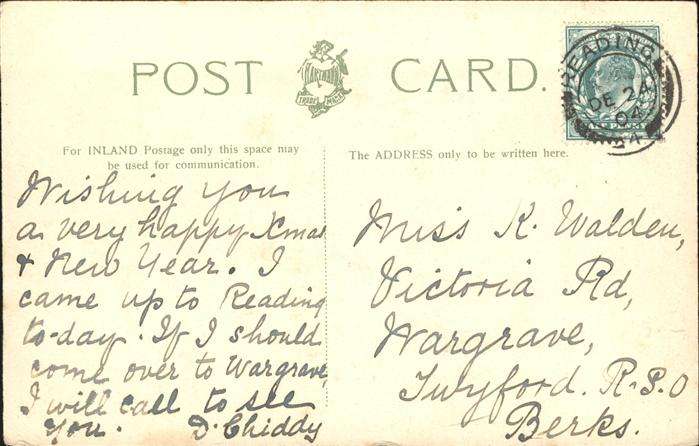 POST CARD.
HARTMANN
TRADE MARK
READING
DE 24
04
For INLAND Postage only this space may
be used for communication.
The ADDRESS only to be written here.
Wishing you
a very happy Xmas
& New Year. I
came up to Reading
to-day. If I should
come over to Wargrave,
I will call to see
you. D. Chiddy
Miss K. Walden,
Victoria Rd,
Wargrave,
Twyford. R.S.O
Berks.